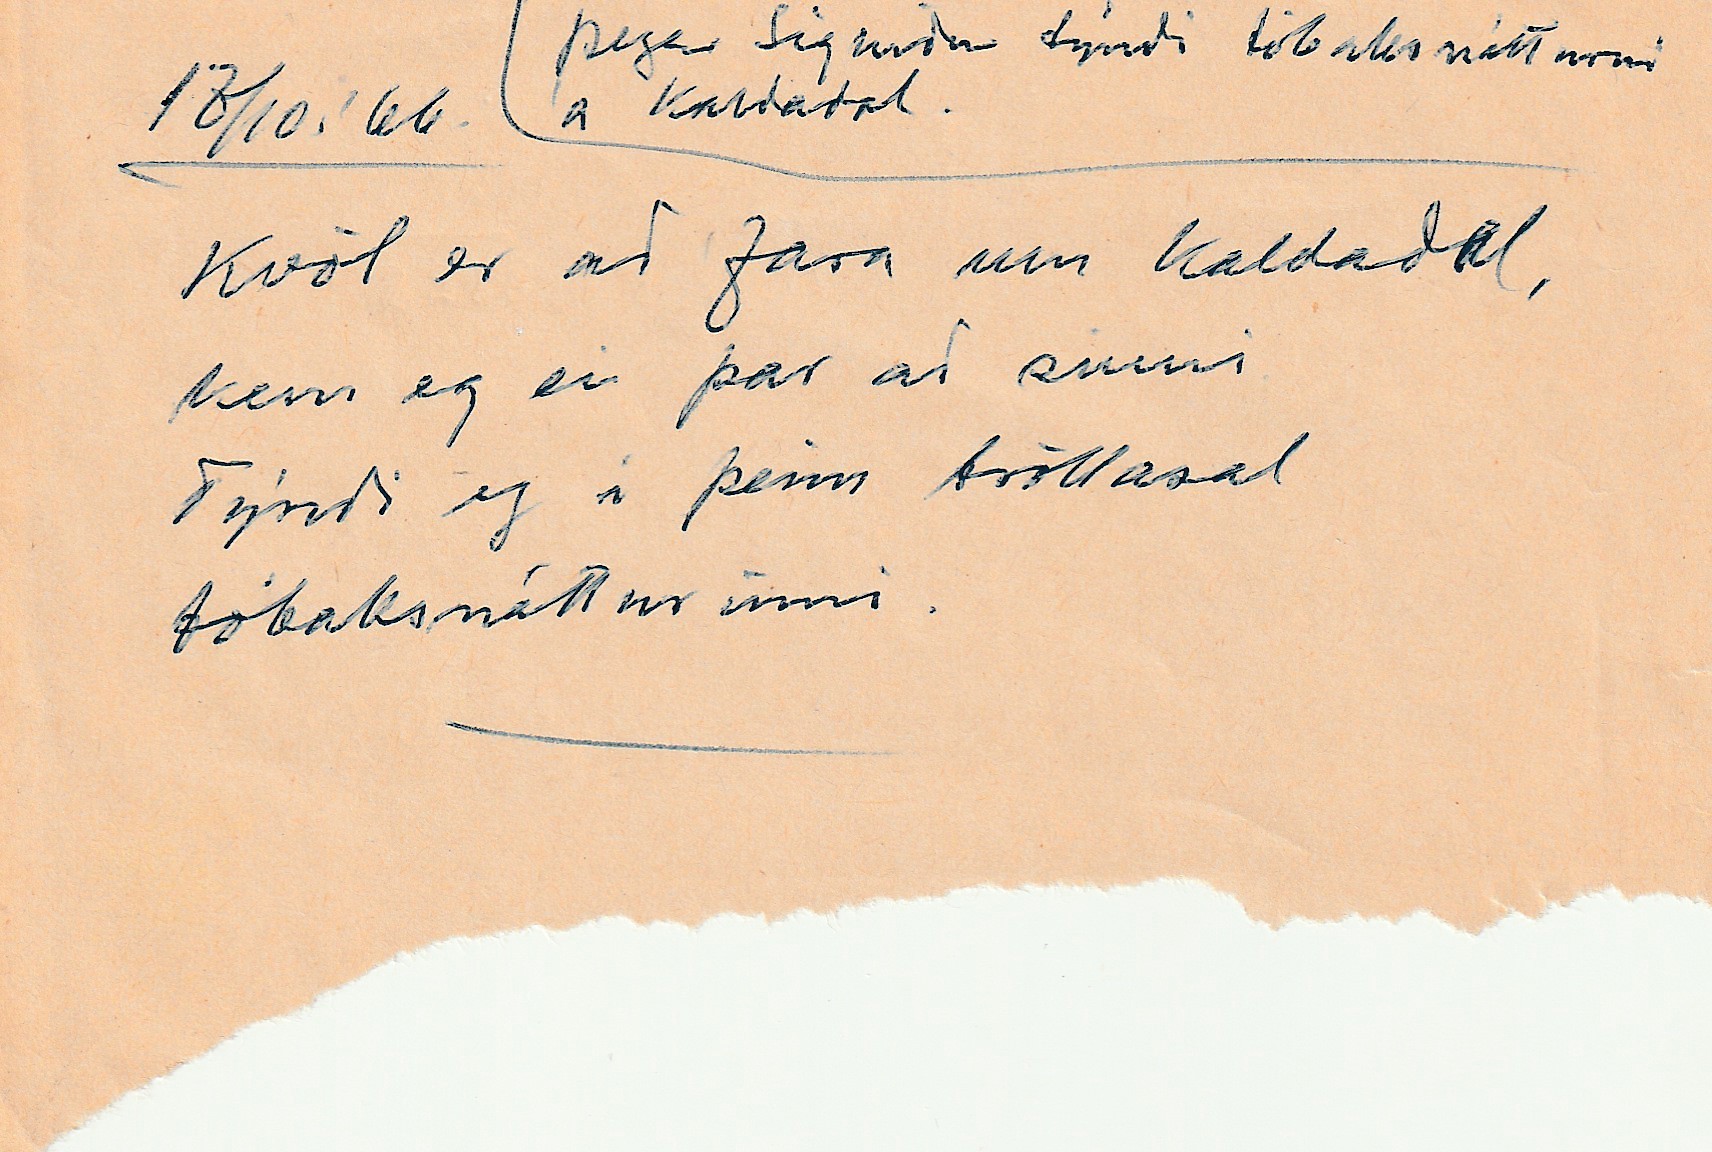 þegar Sigurður týndi tóbaksnáttúrunni
17/10.'66. á Kaldadal.
Kvöl er að fara um Kaldadal,
kem eg ei þar að sinni
Týndi eg í þeim tröllasal
tóbaksnáttúrinni.